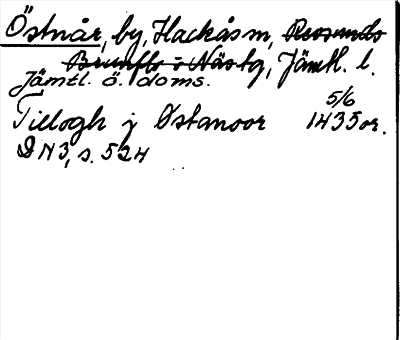 Östnår, by, Hackås sn, Ressunds
Brunflo i Näs tg, Jämtl. l.
Jämtl. ö. doms.
5/6
Tillogh j Østanoor 1435 or.
DN 3, s. 524